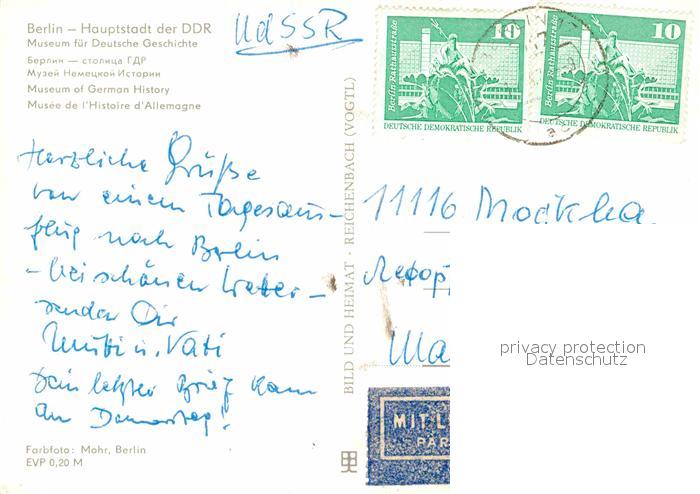 Berlin – Hauptstadt der DDR
Museum für Deutsche Geschichte
Берлин — столица ГДР
Музей Немецкой Истории
Museum of German History
Musée de l'Histoire d'Allemagne
UdSSR
10
Berlin, Rathausstraße
DEUTSCHE DEMOKRATISCHE REPUBLIK
10
Berlin, Rathausstraße
DEUTSCHE DEMOKRATISCHE REPUBLIK
Herzliche Grüße
von einem Tagesaus-
flug nach Berlin
- bei schönem Wetter -
senden Dir
Mutti u. Vati
Dein letzter Brief kam
am Donnerstag!
BILD UND HEIMAT · REICHENBACH (VOGTL)
11116 Москва
Лефор
Ша
privacy protection
Datenschutz
MIT L
PAR
Farbfoto: Mohr, Berlin
EVP 0,20 M